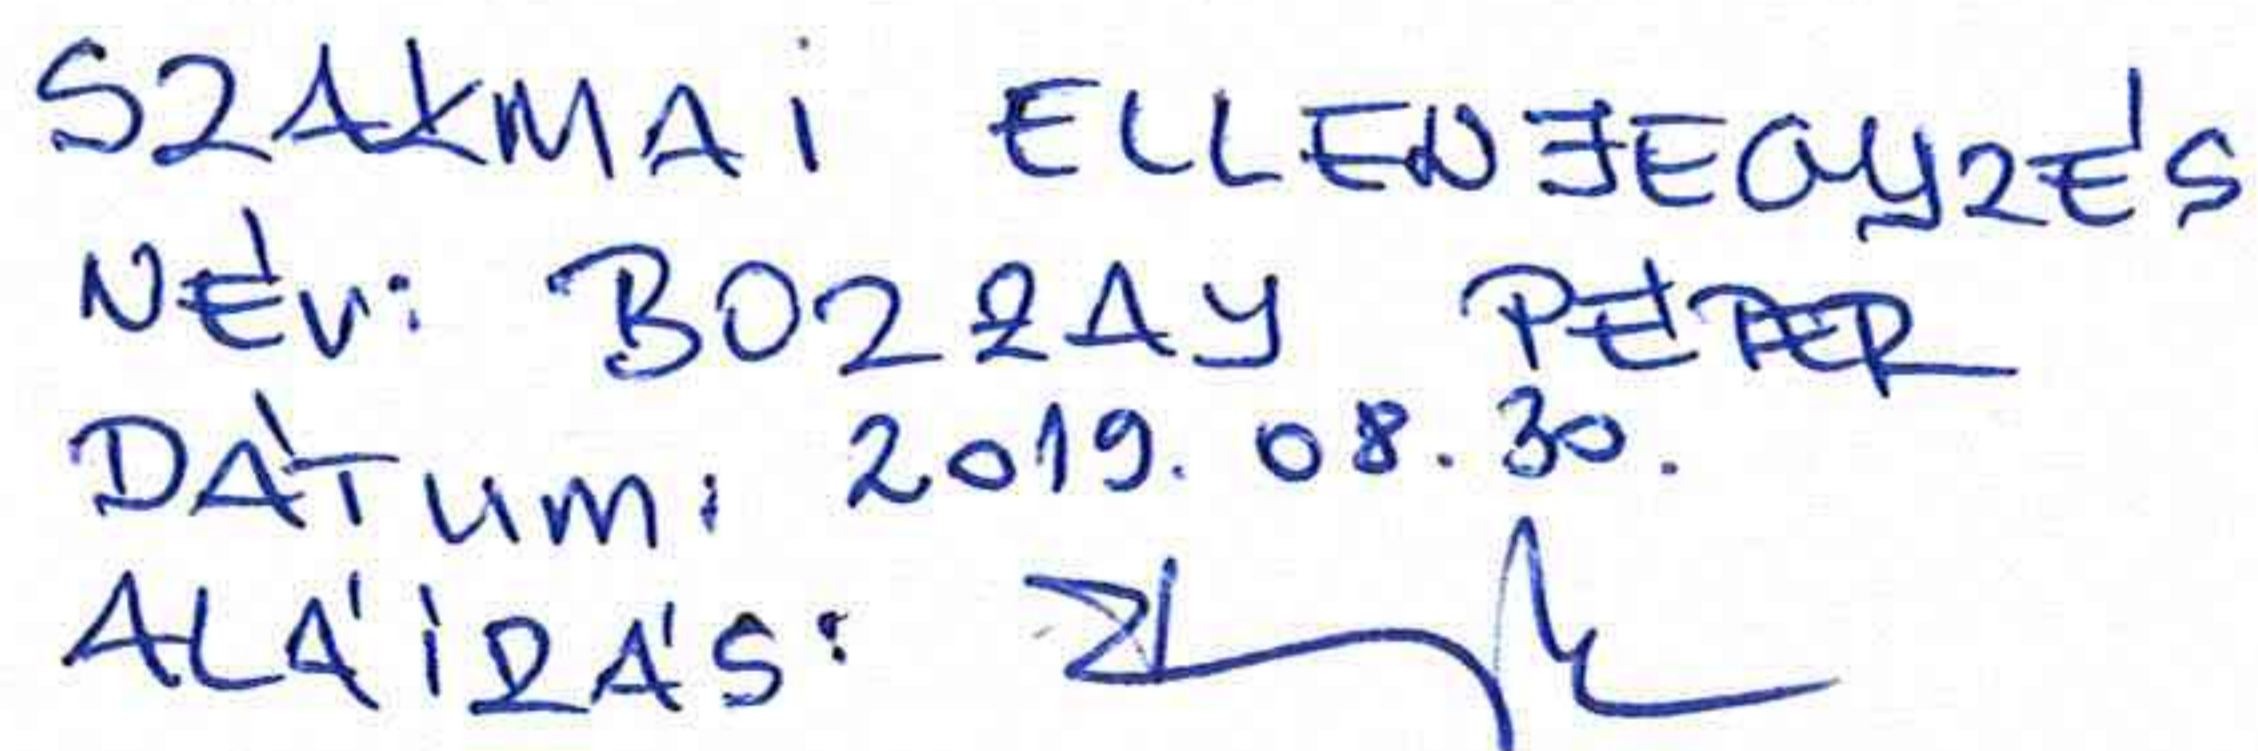 SZAKMAI ELLENJEGYZÉS
NÉV: BOZZAY PÉTER
DÁTUM: 2019. 08. 30.
ALÁÍRÁS: